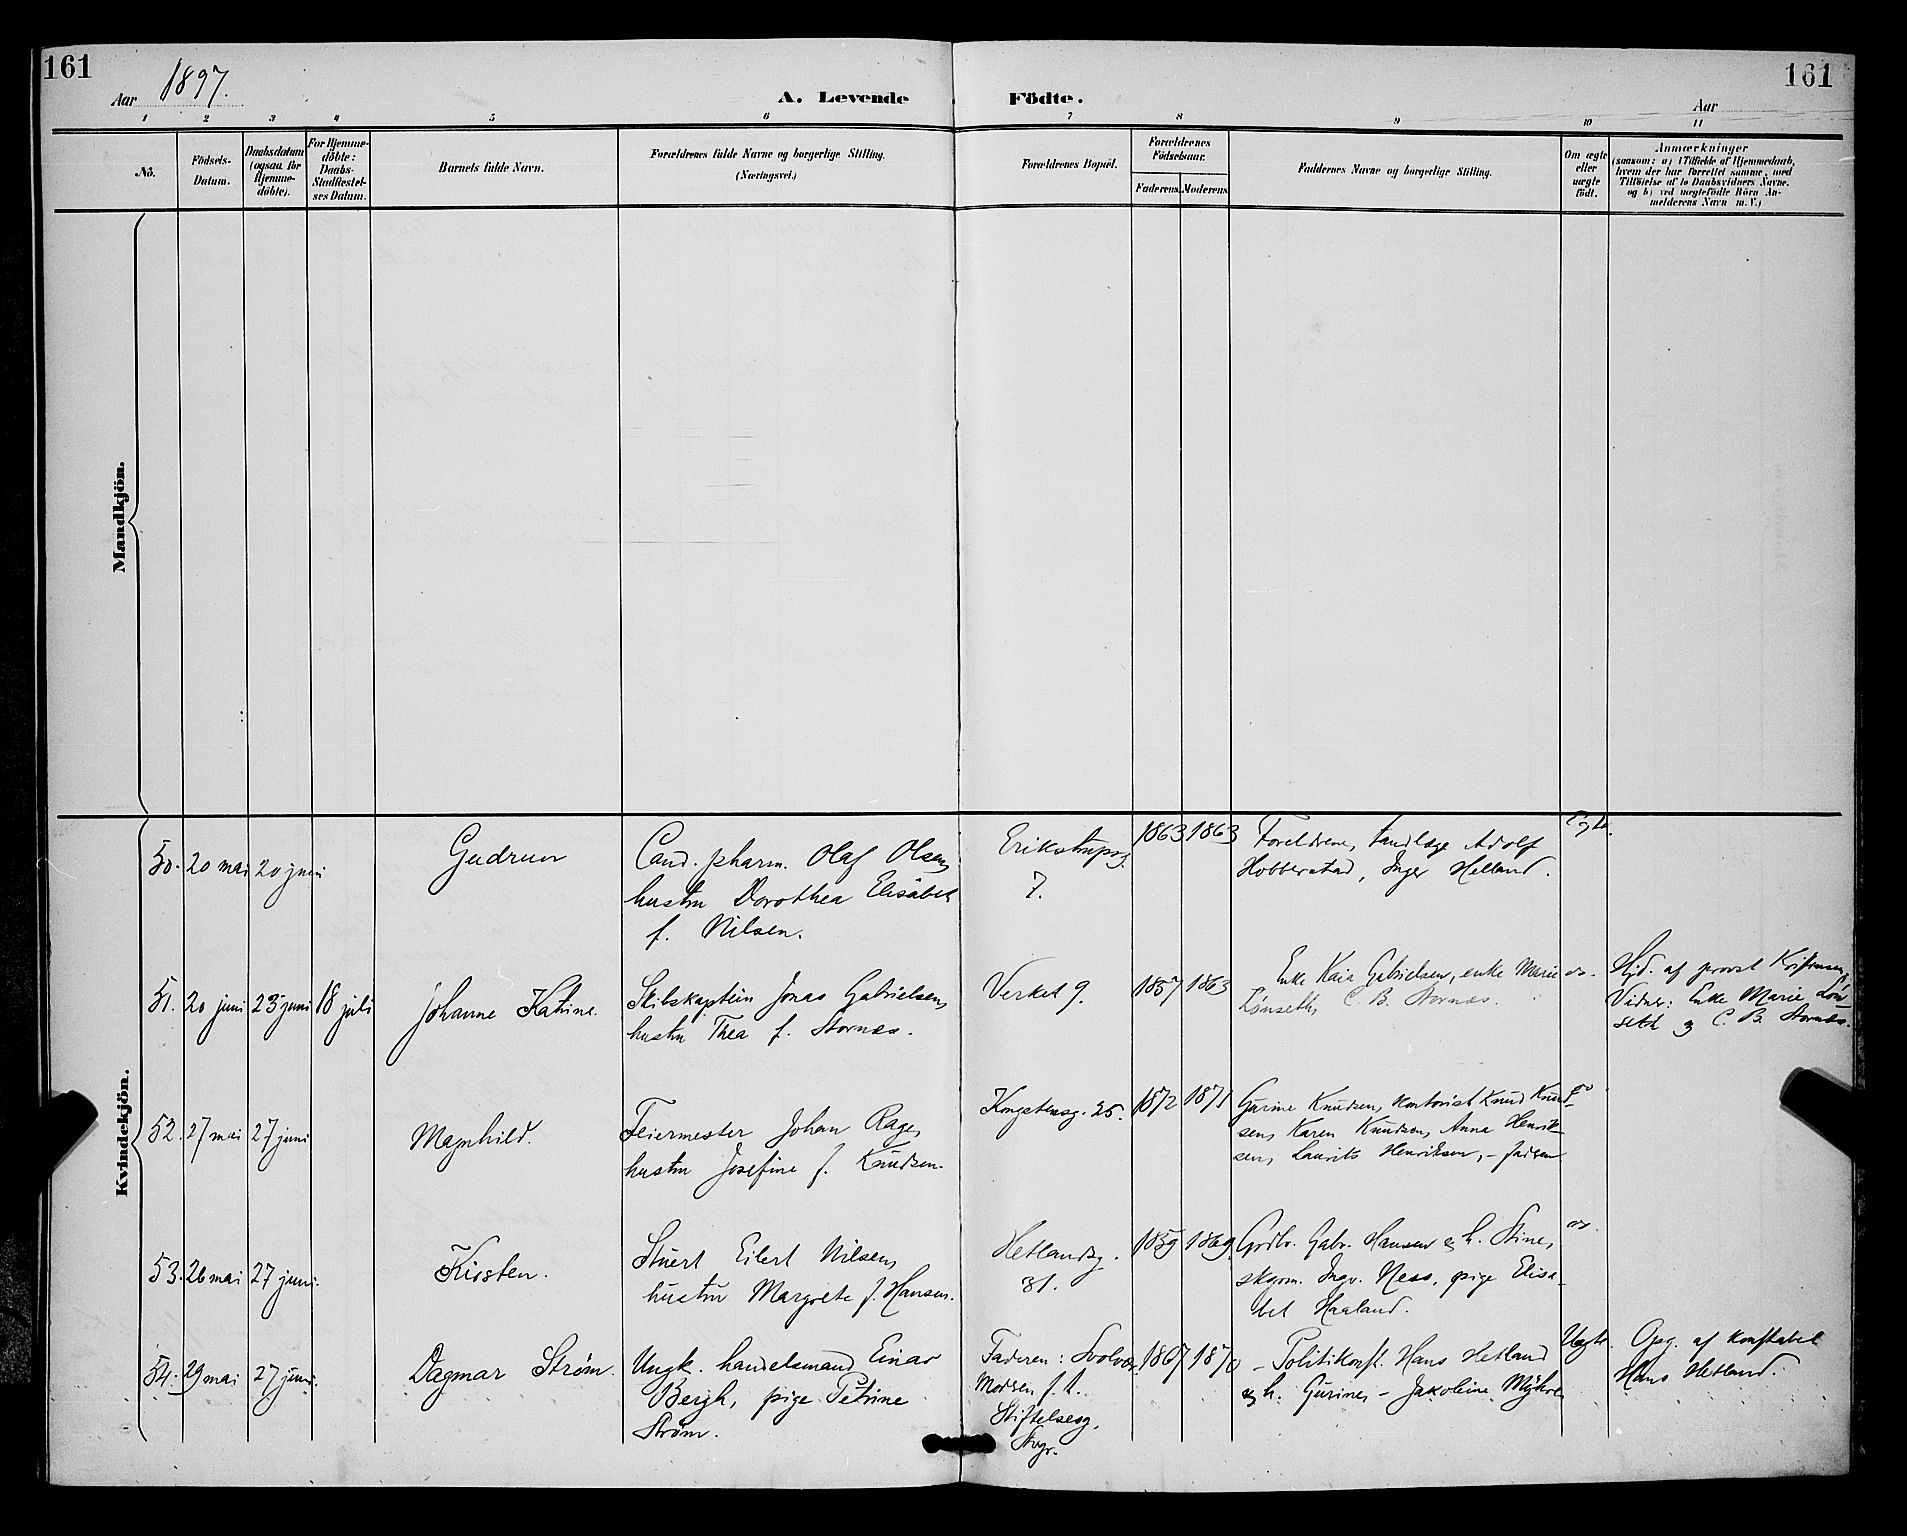 161
Aar 1897.
A. Levende Födte.
Aar
161
1 2 3 4 5 6 7 8 9 10 11
No.
Födsels-
Datum.
Daabsdatum
(ogsaa for
Hjemme-
döbte).
For Hjemme-
döbte:
Daabs-
Stadfæstel-
ses Datum.
Barnets fulde Navn.
Forældrenes fulde Navne og borgerlige Stilling.
(Næringsvei.)
Forældrenes Bopæl.
Forældrenes
Födselsaar.
Faderens. Moderens.
Faddernes Navne og borgerlige Stilling.
Om ægte
eller
uægte
födt.
Anmærkninger
(saasom: a) i Tilfælde af Hjemmedaab,
hvem der har forrettet samme, med
Tilföielse af to Daabsvidners Navne.
og b) ved uægtefödte Börn An-
melderens Navn m. V.)
Mandkjön.
Kvindekjön.
50. 20 mai 20 juni
Gudrun
Cand. pharm. Olaf Olsen,
hustru Dorothea Elisabet
f. Nilsen.
Erikstrupsg.
7.
1863 1863
Foreldrene, tandlæge Adolf
Hobberstad, Inger Helland.
Egte.
51. 20 juni 23 juni 18 juli
Johanne Katrine.
Skibskaptein Jonas Gabrielsen,
hustru Thea f. Stornæs.
Verket 9.
1857 1863
Enke Kaia Gabrielsen, enke Marie
Lønseth, C. B. Stornæs.
do.
Hjd. af provst
Vidner: Enke Marie Løn-
seth og C. B. Stornæs.
52. 27 mai 27 juni
Magnhild.
Feiermester Johan Rage,
hustru Josefine f. Knudsen.
Kongstensg. 25.
1872 1871
Gurine Knudsen, kontorist Knud Knud-
sen, Karen Knudsen, Anna Henrik-
sen, Laurits Henriksen, – faderen
do
53. 26 mai 27 juni.
Kirsten.
Stuert Eilert Nilsen,
hustru Margrete f. Hansen.
Hetlandsg.
31.
1859 1869
Grdbr. Gabr. Hansen og h. Stine,
skgrm. Ingv. Ness, pige Elisa-
bet Haaland.
do.
54. 29 mai 27 juni.
Dagmar Strøm.
Ungk. handelsmand Einar
Bergh, pige Petrine
Strøm.
Faderen: Svolvær
Moderen f. t.
Stiftelsesg,
Stvgr.
1867 1870
– Politikonst. Hans Hetland
og h. Gurine, – Jakobine Myhre
Uegte.
Opg. af konstabel
Hans Hetland.